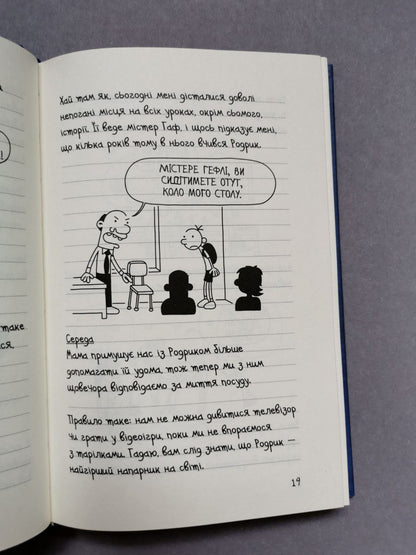 Хай там як, сьогодні мені дісталися доволі
непогані місця на всіх уроках, окрім сьомого,
історії. Її веде містер Гаф, і щось підказує мені,
що кілька років тому в нього вчився Родрик.
МІСТЕРЕ ГЕФЛІ, ВИ
СИДІТИМЕТЕ ОТУТ,
КОЛО МОГО СТОЛУ.
Середа
Мама примушує нас із Родриком більше
допомагати їй удома, тож тепер ми з ним
щовечора відповідаємо за миття посуду.
Правило таке: нам не можна дивитися телевізор
чи грати у відеоігри, поки ми не впораємося
з тарілками. Гадаю, вам слід знати, що Родрик —
найгірший напарник на світі.
19
таке